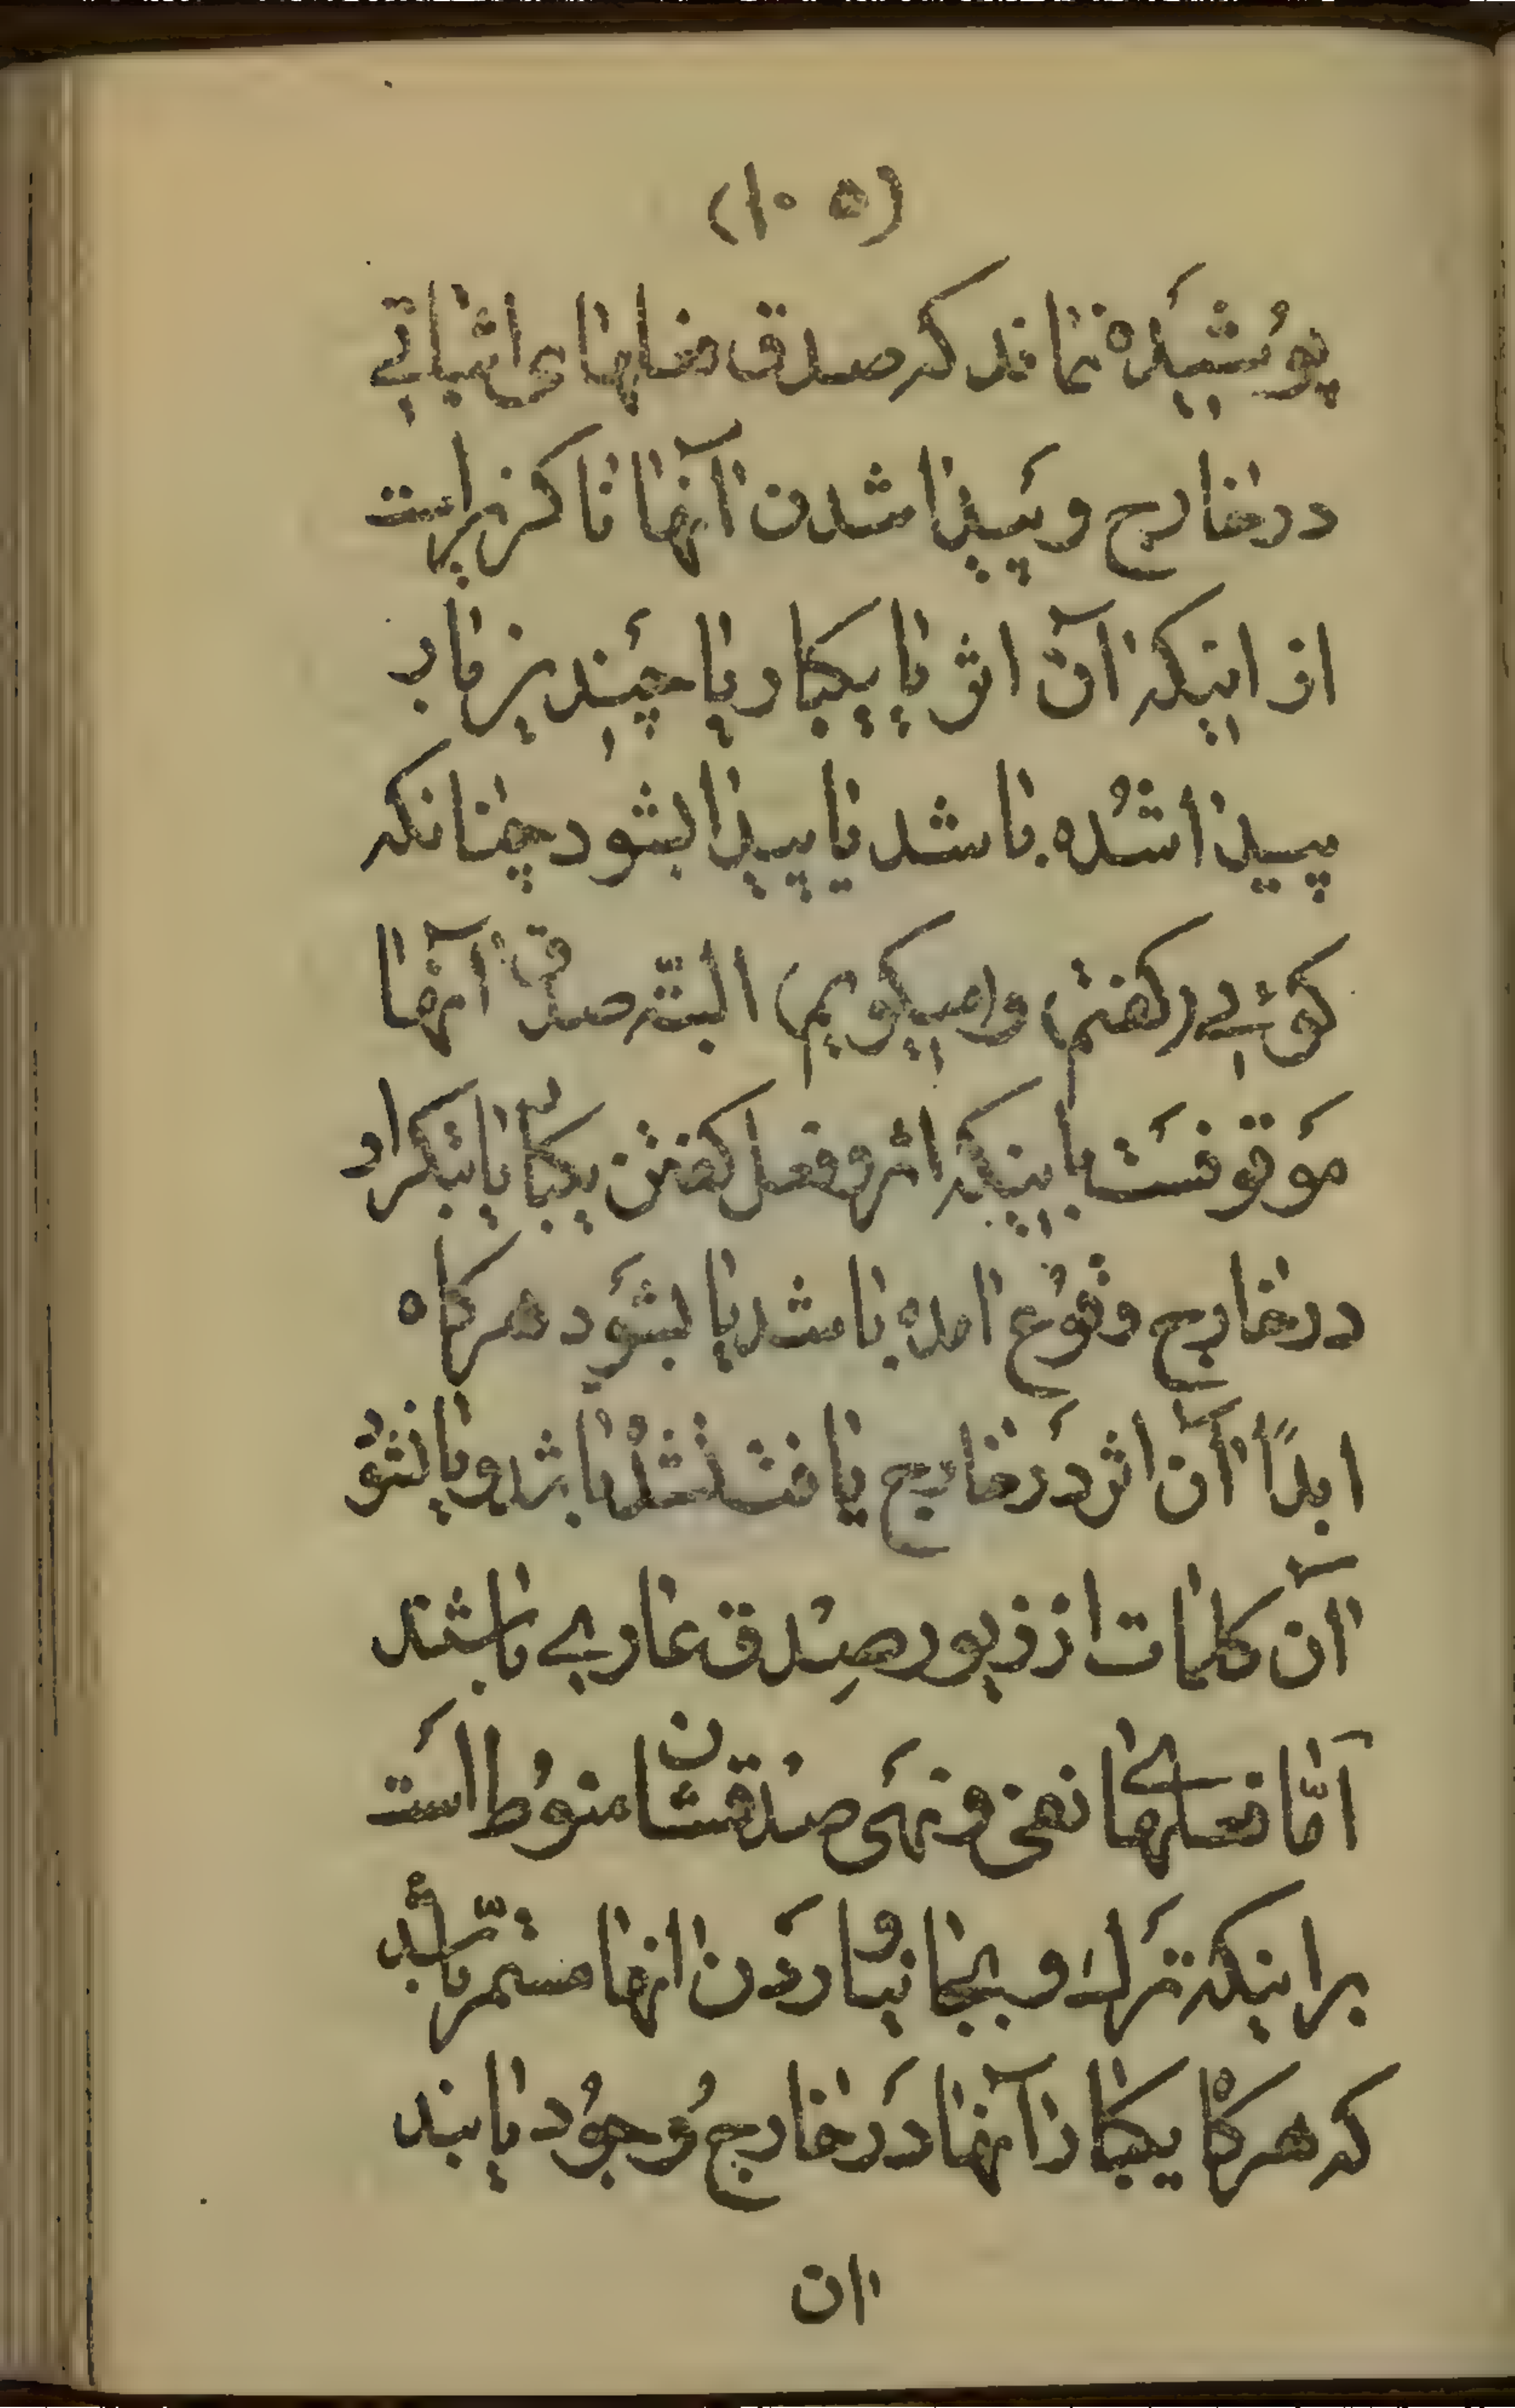 (۱۰۵)
پوُشیَدَه نمٰاند که صدق فعلهٰای اثباتے
در خٰارج و پَیدٰا شدن آنهٰا ناکزیر است
از اینکه آن اثر یٰا یکبار یٰا چَندین بار
پیدٰا شُده بٰاشد یٰا پیدٰا بشود چنٰانکه
کوئے (کفتم) و (میکویم) البتّه صدق آنهٰا
مَوقوفسَت باینکه اثر فعل کفتن یکبار یٰا بتکرار
در خٰارج وقوُع آمده بٰاشد یٰا بشوَد هرکاه
ابداً آن اثر دَر خٰارج یٰافت نشدُه بٰاشد و یٰا نشوُد
آن کلمٰات از زیور صِدق عٰارے بٰاشند
امّٰا فعلهٰاے نفی و نهَی صدقشان منوُط است
براینکه تَرك و بجٰا نیٰاوردَن آنهٰا مستمرّ باشد
که هرکاه یکبٰار آنهٰا دَر خٰارج وُجوُد یٰابند
آن